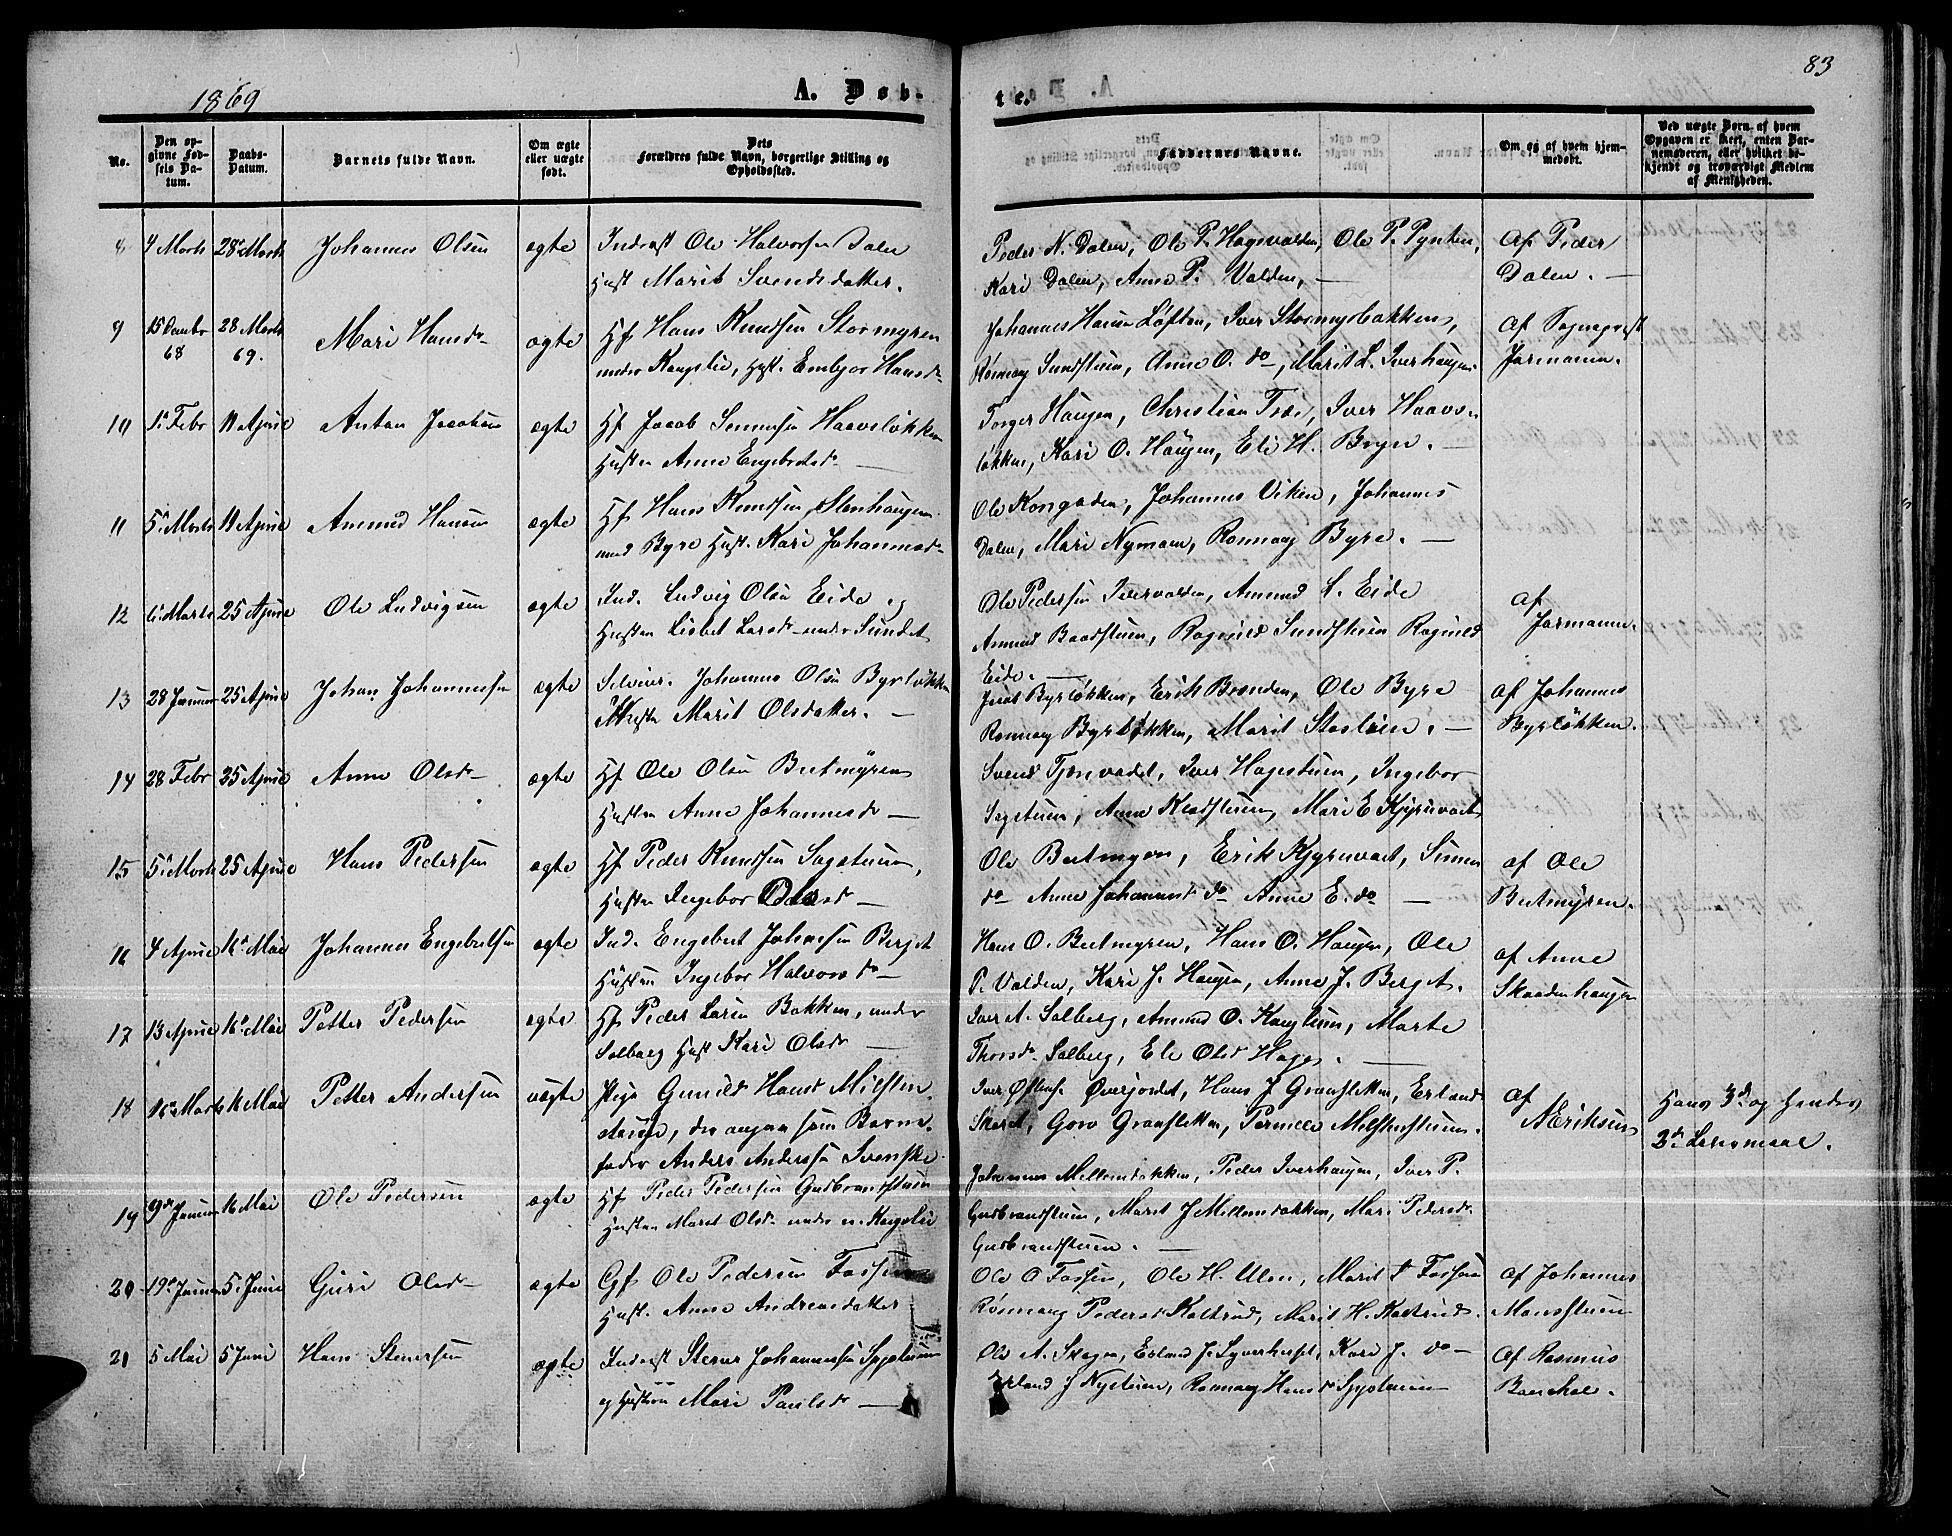 1869
A. Døb-
te.
83
No.
Den op-
givne Fød-
sels Da-
tum.
Daabs-
Datum.
Barnets fulde Navn.
Om ægte
eller uægte
født.
Dets
Forældres fulde Navn, borgerlige Stilling og
Opholdssted.
Faddernes Navne.
Om og af hvem hjem-
medøbt.
Ved uægte Børn, af hvem
Opgaven er skeet, enten Bar-
nemoderen, eller hvilket be-
kjendt og troværdigt Medlem
af Menigheden.
8 4 Marts 28 Marts Johannes Olsen ægte Inderst Ole Halvorsen Dalen
Hust Marit Svendsdatter.
Peder N. Dalen, Ole P. Hagevolden, Ole P. Pynten,
Kari Dalen, Anne P. Volden,
Af Peder
Dalen.
9 15 Decbr 28 Marts Mari Hansdr ægte Hf Hans Knudsen Stormyren
68 69. under Kongslie, Hust. Embjør Hansdr
Johannes Hansen Løften, Iver Stormyrbakken,
Rønnaug Sundstuen, Anne O. do, Marit L. Iverhaugen
af Sogneprest
Jørmann.
10 1 Febr 11 April Anton Jacobsen ægte Hf Jacob Simensen Haavsløkken
Hustru Anne Engebretsdr
Torger Haugen, Christian Troe, Iver Haavs-
løkken, Kari O. Haugen, Eli H. Bryn.
11 5 Marts 11 April Amund Hansen ægte Hf Hans Knudsen Stenhaugen
und Byre Hust. Kari Johannesdr
Ole Korgaden, Johannes Viken, Johannes
Dalen, Mari Nymoen, Rønnaug Byre.
12 6 Marts 25 April Ole Ludvigsen ægte Ind. Ludvig Olsen Eide og
Hustru Lisbet Larsdr under Sundet
Ole Pedersen Iversvolden, Amund L. Eide
Amund Baadstuen, Ragnild Sundstuen Ragnild
Eide.
af
Jørmann.
13 28 Januar 25 April Johan Johannessen ægte Selveier. Johannes Olsen Byrløkken
Hustru Marit Olsdatter.
Jacob Byrløkken, Erik Brenden, Ole Byre
Rønnaug Byrløkken, Marit Stoslien.
af Johannes
Byrløkken.
14 28 Febr 25 April Anne Olsdr ægte Hf Ole Olsen Beitmyren
Hustru Anne Johannesdr
Svend Tjønvadet, Iver Hagestuen, Ingebor
Sagstuen, Anne Kladstuen, Mari E Kjyruvart
15 5 Marts 25 April Hans Pedersen ægte Hf Peder Knudsen Sagstuen,
Hustru Ingebor Olsdr
Ole Beitmyren, Erik Kjyruvart, Simen
do Anne Johannesdr do Anne E. do
af Ole
Beitmyren.
16 4 April 16 Mai Johannes Engebretsen ægte Ind. Engebret Johnsen Berget
Hustru Ingebor Halvorsdr
Hans O. Beitmyren, Hans O. Haugen, Ole
P. Volden, Kari J. Haugen, Anne J. Berget.
af Anne
Skaadenhaugen
17 13 April 16 Mai Petter Pedersen ægte Hf Peder Larsen Bakken, under
Solberg Hust Kari Olsdr
Iver A. Solberg, Amund O. Haugstuen, Marte
Thorsdr Solberg, Eli Olsd Hage.
18 16 Marts 16 Mai Petter Andersen uægte Pige Gunild Hansd Milsten-
stuen, der angav som Barne-
fader Anders Anderssen Svenske
Iver Østensen Øverjordet, Hans J Graafletten, Erland
Skaret, Goro Graafletten, Pernille Milstenstuen.
af
N Eriksen
Hans 3de og Hendes
2de Leiermaal.
19 9 Januar 16 Mai Ole Pedersen ægte Hf Peder Pedersen Gudbrandstuen
Hustru Marit Olsdr under n. Kongslie
Johannes Mellemløkken, Peder Iverhaugen, Iver P.
Gudbrandstuen, Marit J Mellemløkken, Mari Pedersdr
Gudbrandstuen.
20 19 Januar 5 Juni Guri Olsdr ægte Gf Ole Pedersen Fossum
Hust. Anne Andreasdatter
Ole O Fossen, Ole H. Ulen, Marit P Fossen
Rønnaug Pedersd Kaltrud, Marit H. Kaltrud.
af Johannes
Monsstuen
21 5 Mai 5 Juni Hans Stenersen ægte Inderst Stener Johannessen Sygstuen
og Hustru Mari Paulsdr
Ole A. Skogen, Erland J. Lyverhuset, Kari J. do
Erland J Nystuen, Rønnaug Hansdr Sygstuen
af Rasmus
Baukhol.